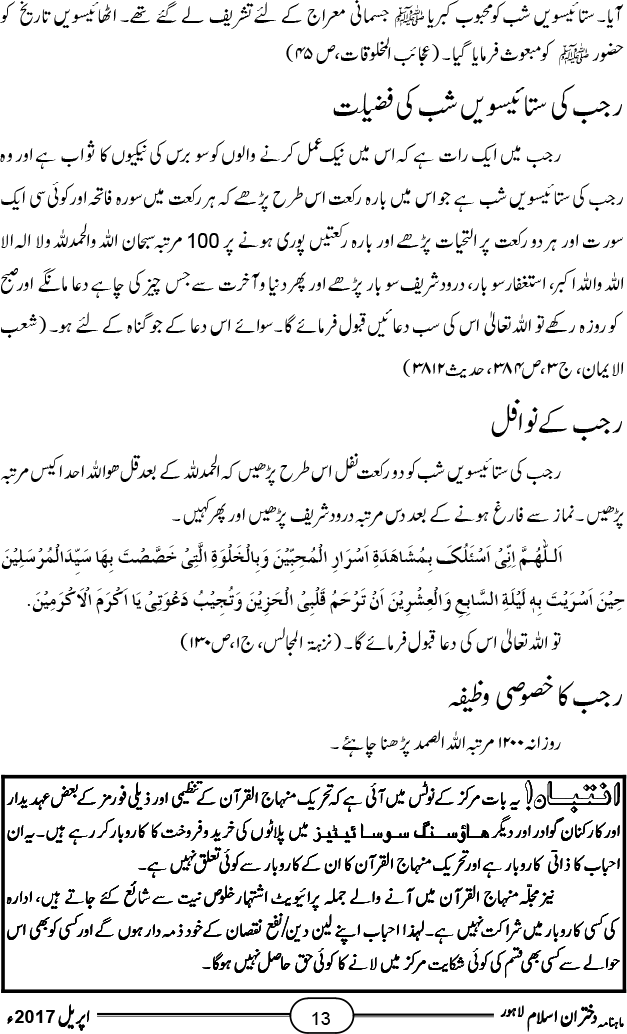 آیا۔ ستائیسویں شب کو محبوب کبریا ﷺ جسمانی معراج کے لئے تشریف لے گئے تھے۔ اٹھائیسویں تاریخ کو
حضور ﷺ کو مبعوث فرمایا گیا۔ (عجائب المخلوقات، ص ۴۵)
رجب کی ستائیسویں شب کی فضیلت
رجب میں ایک رات ہے کہ اس میں نیک عمل کرنے والوں کو سو برس کی نیکیوں کا ثواب ہے اور وہ
رجب کی ستائیسویں شب ہے جو اس میں بارہ رکعت اس طرح پڑھے کہ ہر رکعت میں سورہ فاتحہ اور کوئی سی ایک
سورت اور ہر دو رکعت پر التحیات پڑھے اور بارہ رکعتیں پوری ہونے پر 100 مرتبہ سبحان اللہ والحمدللہ ولا الہ الا
اللہ واللہ اکبر، استغفار سو بار، درود شریف سو بار پڑھے اور پھر دنیا وآخرت سے جس چیز کی چاہے دعا مانگے اور صبح
کو روزہ رکھے تو اللہ تعالیٰ اس کی سب دعائیں قبول فرمائے گا۔ سوائے اس دعا کے جو گناہ کے لئے ہو۔ (شعب
الایمان، ج ۳، ص ۳۸۴، حدیث ۳۸۱۲)
رجب کے نوافل
رجب کی ستائیسویں شب کو دو رکعت نفل اس طرح پڑھیں کہ الحمدللہ کے بعد قل ھو اللہ احد اکیس مرتبہ
پڑھیں۔ نماز سے فارغ ہونے کے بعد دس مرتبہ درود شریف پڑھیں اور پھر کہیں۔
اَللّٰهُمَّ اِنِّیْ اَسْئَلُکَ بِمُشَاهَدَةِ اَسْرَارِ الْمُحِبِّیْنَ وَبِالْخَلْوَةِ الَّتِیْ خَصَّصْتَ بِهَا سَیِّدَ الْمُرْسَلِیْنَ
حِیْنَ اَسْرَیْتَ بِهِ لَیْلَةِ السَّابِعِ وَالْعِشْرِیْنَ اَنْ تَرْحَمَ قَلْبِیْ الْحَزِیْنَ وَتُجِیْبُ دَعْوَتِیْ یَا اَکْرَمَ الْاَکْرَمِیْنَ.
تو اللہ تعالیٰ اس کی دعا قبول فرمائے گا۔ (نزہۃ المجالس، ج ۱، ص ۱۳۰)
رجب کا خصوصی وظیفہ
روزانہ ۱۲۰۰ مرتبہ اللہ الصمد پڑھنا چاہئے۔
انتباہ! یہ بات مرکز کے نوٹس میں آئی ہے کہ تحریک منہاج القرآن کے تنظیمی اور ذیلی فورمز کے بعض عہدیدار
اور کارکنان گوادر اور دیگر ہاؤسنگ سوسائیٹیز میں پلاٹوں کی خرید و فروخت کا کاروبار کر رہے ہیں۔ یہ ان
احباب کا ذاتی کاروبار ہے اور تحریک منہاج القرآن کا ان کے کاروبار سے کوئی تعلق نہیں ہے۔
نیز مجلّہ منہاج القرآن میں آنے والے جملہ پرائیویٹ اشتہار خلوص نیت سے شائع کئے جاتے ہیں، ادارہ
کی کسی کاروبار میں شراکت نہیں ہے۔ لہذا احباب اپنے لین دین/نفع نقصان کے خود ذمہ دار ہوں گے اور کسی کو بھی اس
حوالے سے کسی بھی قسم کی کوئی شکایت مرکز میں لانے کا کوئی حق حاصل نہیں ہوگا۔
ماہنامہ دختران اسلام لاہور 13 اپریل 2017ء